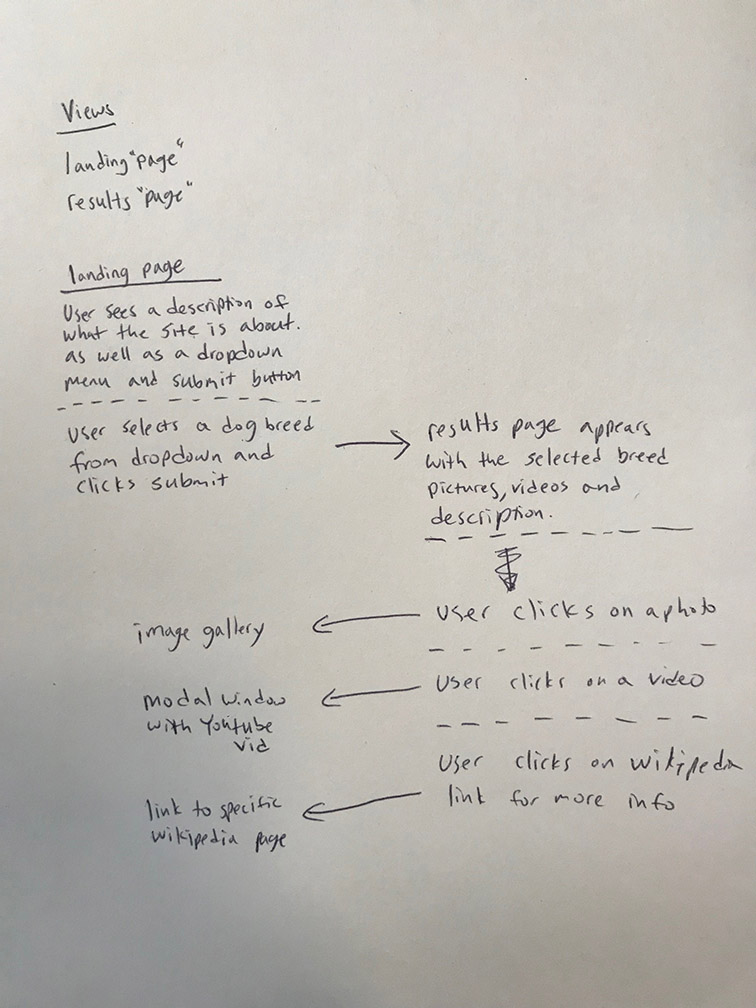 Views
landing "page"
results "page"
landing page
User sees a description of
what the site is about.
as well as a dropdown
menu and submit button
User selects a dog breed
from dropdown and
clicks submit
results page appears
with the selected breed
pictures, videos and
description.
user clicks on a photo
image gallery
User clicks on a video
modal window
with Youtube
vid
User clicks on wikipedia
link for more info
link to specific
wikipedia page